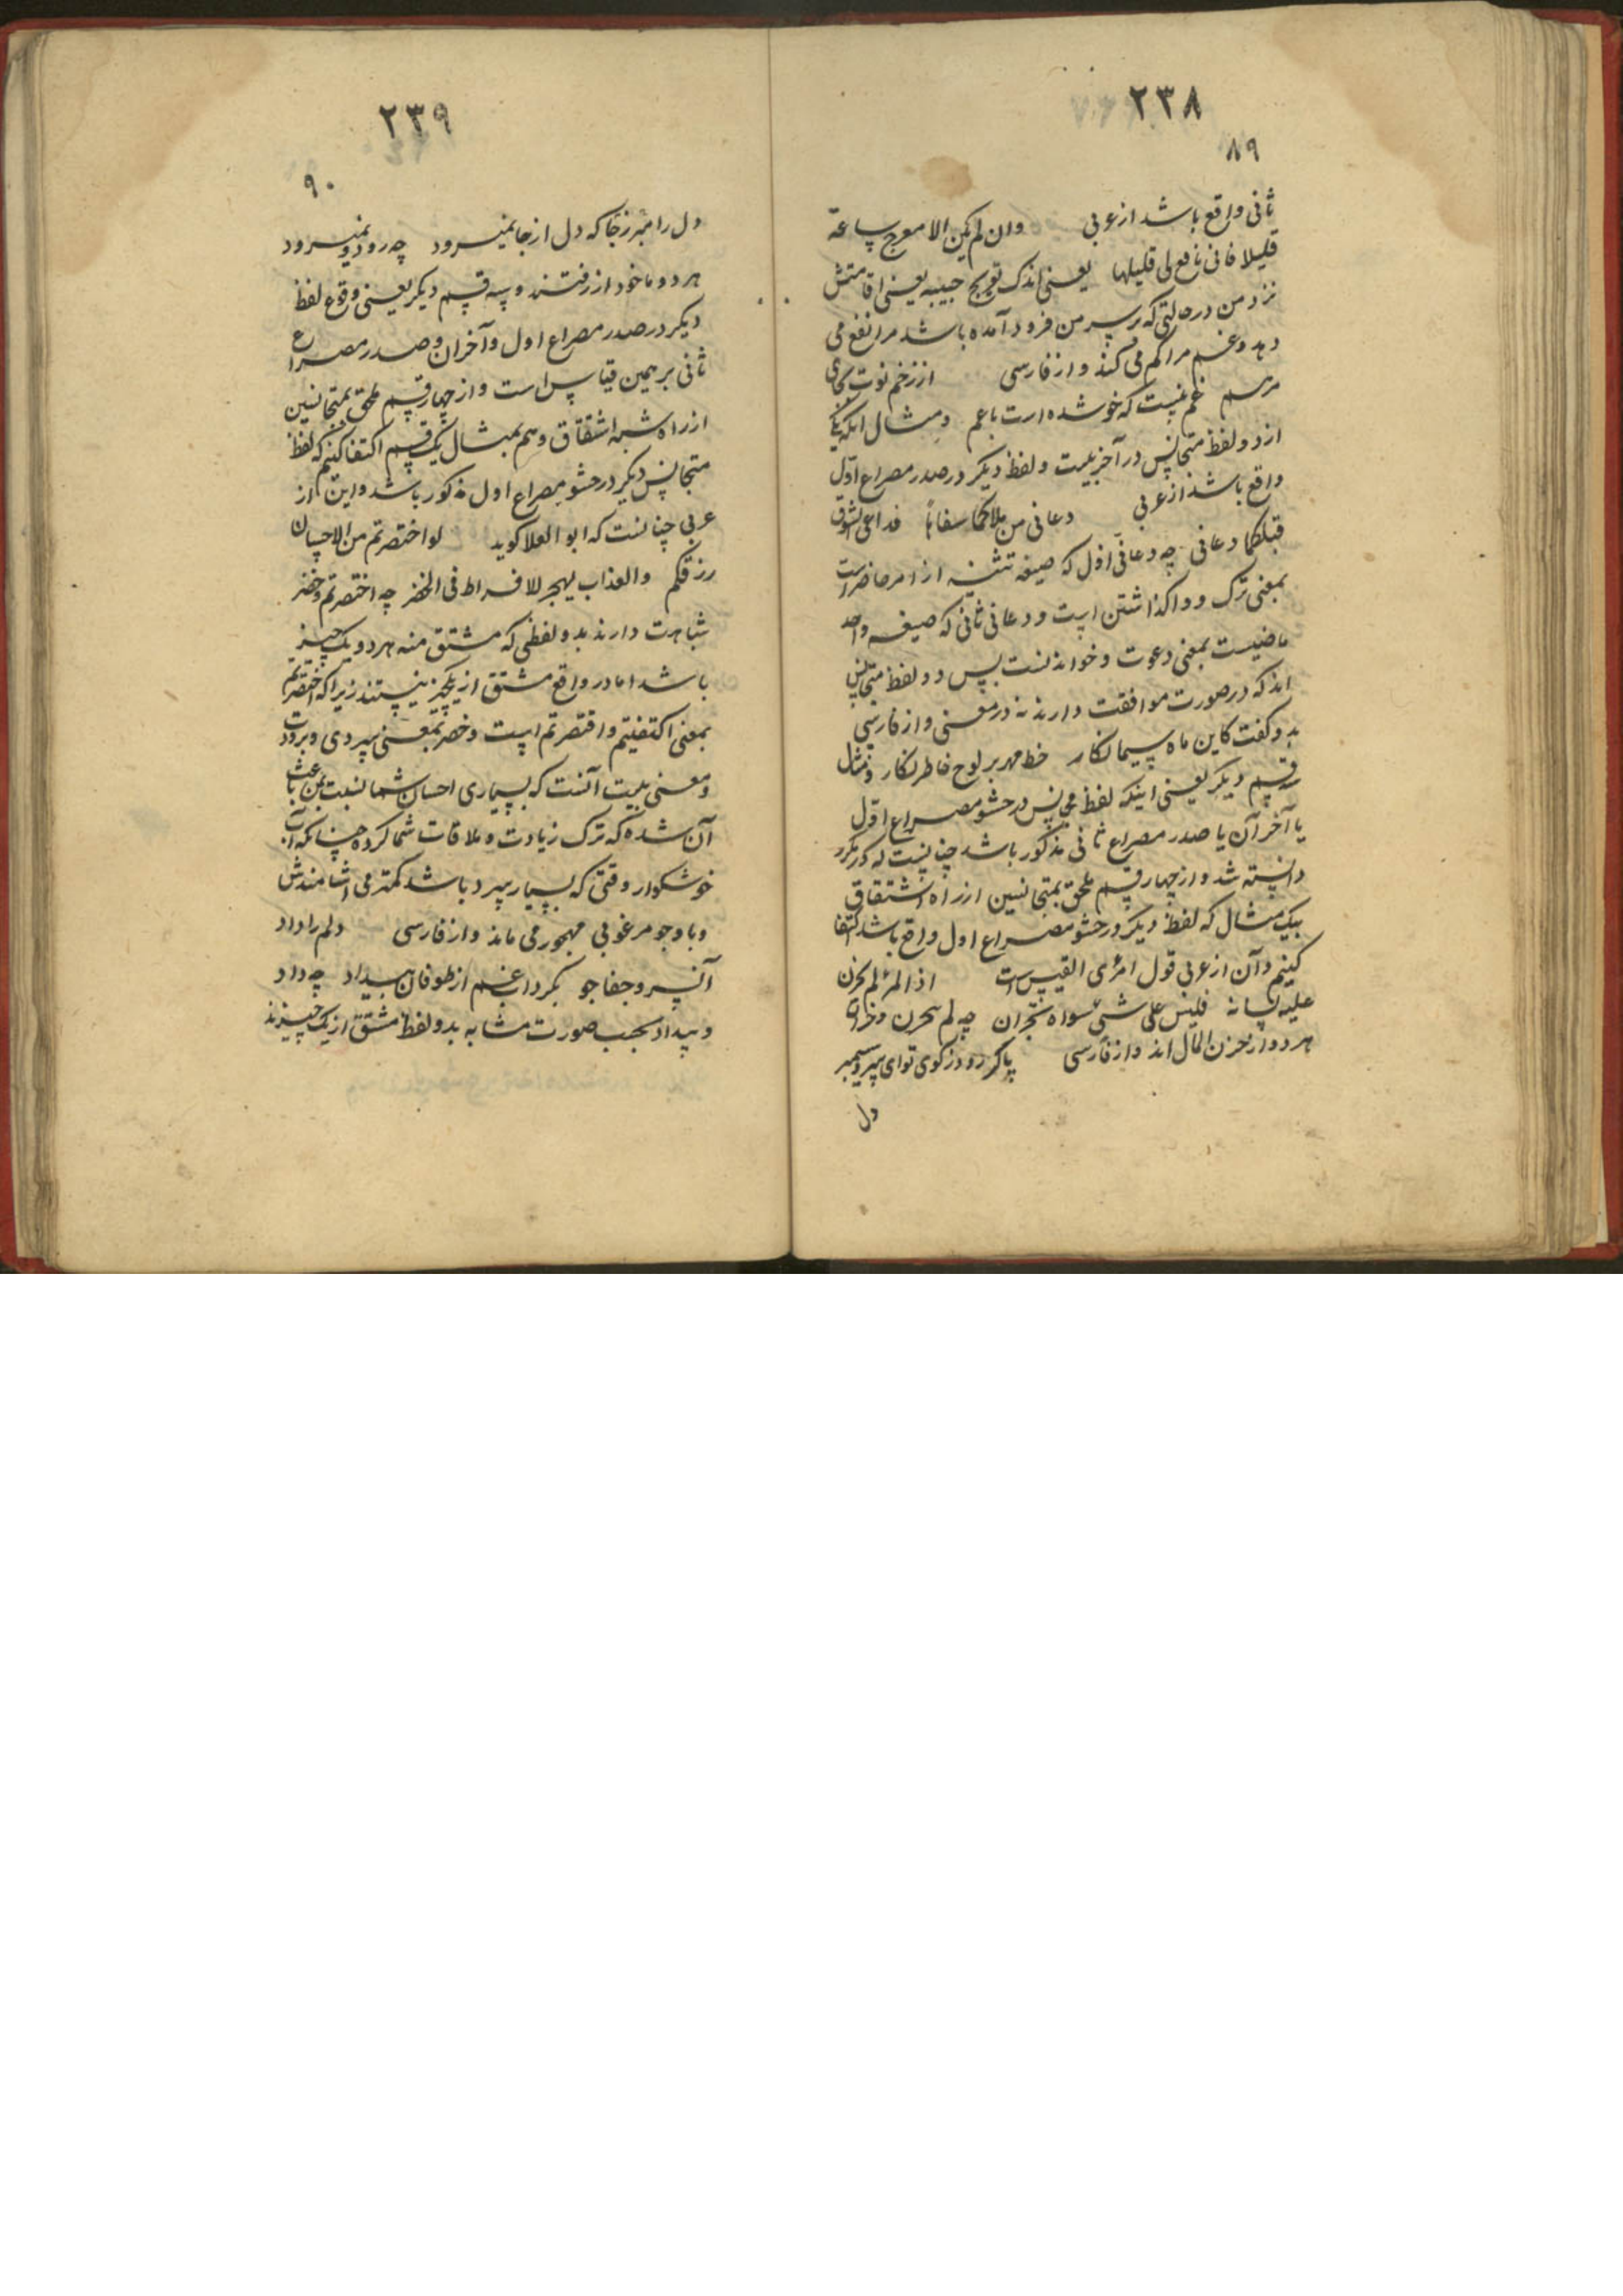 ٢٣٨
٨٩
ثانی واقع باشد از عربی وان لم یکن الا معرج ساعة
قلیلا فانی نافع لی قلیلها یعنی اندک تعریج حبیبه یعنی اقامتش
نزد من در حالتی که بر سر من فرود آمده باشد مرا نفع می
دهد و غم مرا کم می کند و از فارسی از زخم نوت کجای
مرهم غم نیست که خو شده است با غم و مثال انکه یکی
از دو لفظ متجانس در آخر بیت و لفظ دیگر در صدر مصراع اوّل
واقع باشد از عربی دعانی من ملامکما سفاها فداعی الشوق
قبلکما دعانی چه دعانی اول که صیغه تثنیه از امر حاضر است
بمعنی ترک و واگذاشتن است و دعانی ثانی که صیغه واحد
ماضیست بمعنی دعوت و خواندنست پس دو لفظ متجانس
اند که در صورت موافقت دارند نه در معنی و از فارسی
بدو کفت کاین ماه سیما نکار خط مهر بر لوح خاطر نکار و مثال
سه قسم دیگر یعنی اینکه لفظ مجانس در حشو مصراع اوّل
یا آخر آن یا صدر مصراع ثانی مذکور باشد چنانست که در مکرر
دانسته شد و از چهار قسم ملحق بمتجانسین از راه اشتقاق
بیک مثال که لفظ دیگر در حشو مصراع اول واقع باشد اکتفا
کنیم و آن از عربی قول امرئ القیس است اذا المرء لم یخزن
علیه لسانه فلیس علی شئ سواه بخزان چه لم یخزن و خزان
هر دو از خزن المال اند و از فارسی پا گر رود ز کوی تو ای سرو سیمبر
دل
٢٣٩
٩٠
دل را مبر ز جا که دل از جا نمیرود چه رود و نمیرود
هر دو ماخود از رفتند و سه قسم دیگر یعنی وقوع لفظ
دیگر در صدر مصراع اول و آخر ان و صدر مصراع
ثانی بر همین قیاس است و از چهار قسم ملحق بمتجانسین
از راه شبه اشتقاق و هم بمثال یک قسم اکتفا کنیم که لفظ
متجانس دیگر در حشو مصراع اول مذکور باشد و این از
عربی چنانست که ابو العلا کوید لو اختصرتم من الاحسان
زرتکم والعذاب یهجر للافراط فی الخصر چه اختصرتم و خصر
شباهت دارند بدو لفظی که مشتق منه هر دو یک چیز
باشد اما در واقع مشتق از یکچیز نیستند زیرا که اختصرتم
بمعنی اکتفیتم و اقتصرتم است و خصر بمعنی سردی و برودت
و معنی بیت آنست که بسیاری احسان شما نسبت بمن باعث
آن شده که ترک زیادت و ملاقات شما کرده چنانکه آب
خوشکوار وقتی که بسیار سرد باشد کمتر می اشامندش
و با وجو مرغوبی مهجور می ماند و از فارسی دلم را داد
آن سرو جفا جو بکرداب غم از طوفان بیداد چه داد
و بیداد بحسب صورت مشابه بدو لفظ مشتق از یک چیزند